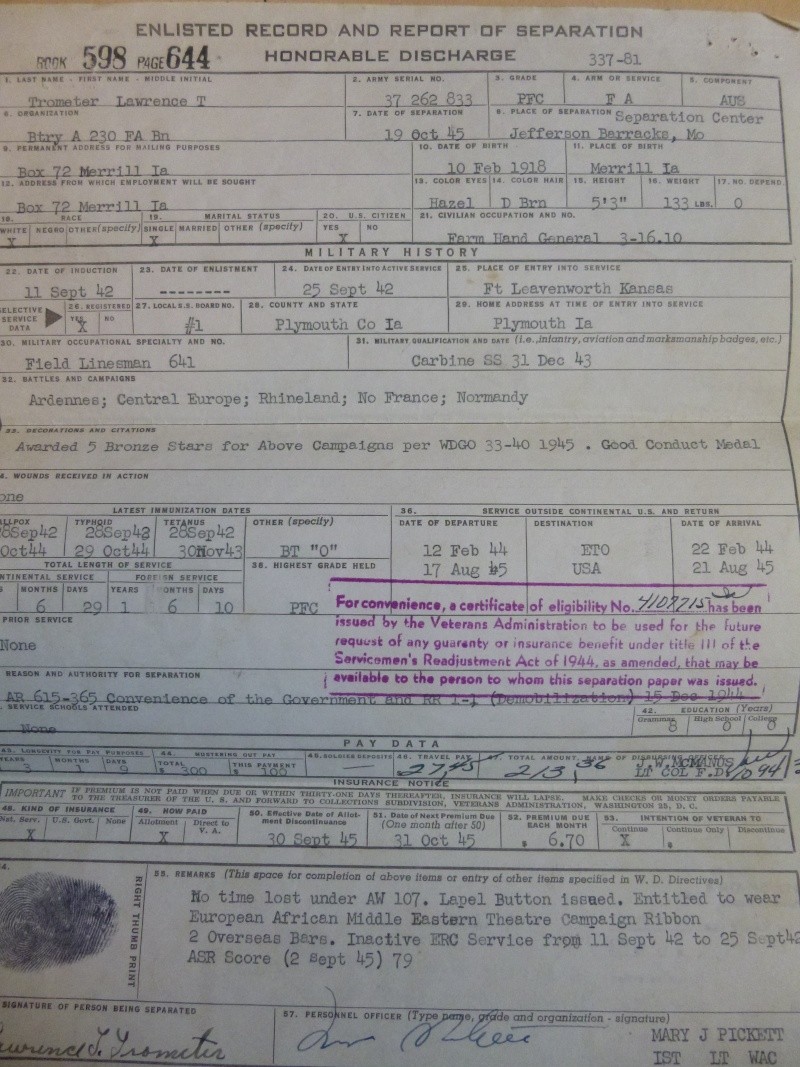 ENLISTED RECORD AND REPORT OF SEPARATION
BOOK 598 PAGE 644 HONORABLE DISCHARGE 337-81
1. LAST NAME - FIRST NAME - MIDDLE INITIAL 2. ARMY SERIAL NO. 3. GRADE 4. ARM OR SERVICE 5. COMPONENT
Trometer Lawrence T 37 262 833 PFC F A AUS
6. ORGANIZATION 7. DATE OF SEPARATION 8. PLACE OF SEPARATION Separation Center
Btry A 230 FA Bn 19 Oct 45 Jefferson Barracks, Mo
9. PERMANENT ADDRESS FOR MAILING PURPOSES 10. DATE OF BIRTH 11. PLACE OF BIRTH
Box 72 Merrill Ia 10 Feb 1918 Merrill Ia
12. ADDRESS FROM WHICH EMPLOYMENT WILL BE SOUGHT 13. COLOR EYES 14. COLOR HAIR 15. HEIGHT 16. WEIGHT 17. NO. DEPEND.
Box 72 Merrill Ia Hazel D Brn 5'3" 133 LBS. 0
18. RACE 19. MARITAL STATUS 20. U.S. CITIZEN 21. CIVILIAN OCCUPATION AND NO.
WHITE NEGRO OTHER (specify) SINGLE MARRIED OTHER (specify) YES NO
X X X Farm Hand General 3-16.10
MILITARY HISTORY
22. DATE OF INDUCTION 23. DATE OF ENLISTMENT 24. DATE OF ENTRY INTO ACTIVE SERVICE 25. PLACE OF ENTRY INTO SERVICE
11 Sept 42 -------- 25 Sept 42 Ft Leavenworth Kansas
SELECTIVE SERVICE DATA 26. REGISTERED YES NO 27. LOCAL S.S. BOARD NO. 28. COUNTY AND STATE 29. HOME ADDRESS AT TIME OF ENTRY INTO SERVICE
X #1 Plymouth Co Ia Plymouth Ia
30. MILITARY OCCUPATIONAL SPECIALTY AND NO. 31. MILITARY QUALIFICATION AND DATE (i.e., infantry, aviation and marksmanship badges, etc.)
Field Linesman 641 Carbine SS 31 Dec 43
32. BATTLES AND CAMPAIGNS
Ardennes; Central Europe; Rhineland; No France; Normandy
33. DECORATIONS AND CITATIONS
Awarded 5 Bronze Stars for Above Campaigns per WDGO 33-40 1945 . Good Conduct Medal
4. WOUNDS RECEIVED IN ACTION
one
LATEST IMMUNIZATION DATES 36. SERVICE OUTSIDE CONTINENTAL U.S. AND RETURN
LLPOX TYPHOID TETANUS OTHER (specify) DATE OF DEPARTURE DESTINATION DATE OF ARRIVAL
8Sep42 28Sep42 28Sep42
Oct44 29 Oct44 30Nov43 BT "O" 12 Feb 44 ETO 22 Feb 44
17 Aug 45 USA 21 Aug 45
TOTAL LENGTH OF SERVICE 38. HIGHEST GRADE HELD
NTINENTAL SERVICE FOREIGN SERVICE
MONTHS DAYS YEARS MONTHS DAYS
6 29 1 6 10 PFC
For convenience, a certificate of eligibility No. 4108715 has been
issued by the Veterans Administration to be used for the future
request of any guaranty or insurance benefit under title III of the
Servicemen's Readjustment Act of 1944, as amended, that may be
available to the person to whom this separation paper was issued.
PRIOR SERVICE
None
REASON AND AUTHORITY FOR SEPARATION
AR 615-365 Convenience of the Government and RR 1-1 (Demobilization) 15 Dec 1944
SERVICE SCHOOLS ATTENDED 42. EDUCATION (Years)
None Grammar 8 High School 0 College 0
PAY DATA
43. LONGEVITY FOR PAY PURPOSES 44. MUSTERING OUT PAY 45. SOLDIER DEPOSITS 46. TRAVEL PAY 47. TOTAL AMOUNT, NAME OF DISBURSING OFFICER
YEARS 3 MONTHS 1 DAYS 9 TOTAL $ 300 THIS PAYMENT $ 100 27.45 213.36 J.W. McMANOS
LT COL F.D.
INSURANCE NOTICE
IMPORTANT IF PREMIUM IS NOT PAID WHEN DUE OR WITHIN THIRTY-ONE DAYS THEREAFTER, INSURANCE WILL LAPSE. MAKE CHECKS OR MONEY ORDERS PAYABLE
TO THE TREASURER OF THE U. S. AND FORWARD TO COLLECTIONS SUBDIVISION, VETERANS ADMINISTRATION, WASHINGTON 25, D. C.
48. KIND OF INSURANCE 49. HOW PAID 50. Effective Date of Allotment Discontinuance 51. Date of Next Premium Due (One month after 50) 52. PREMIUM DUE EACH MONTH 53. INTENTION OF VETERAN TO
Nat. Serv. U.S. Govt. None Allotment Direct to V. A. Continue Continue Only Discontinue
X X 30 Sept 45 31 Oct 45 $ 6.70 X $
54. RIGHT THUMB PRINT
55. REMARKS (This space for completion of above items or entry of other items specified in W. D. Directives)
No time lost under AW 107. Lapel Button issued. Entitled to wear
European African Middle Eastern Theatre Campaign Ribbon
2 Overseas Bars. Inactive ERC Service from 11 Sept 42 to 25 Sept42
ASR Score (2 sept 45) 79
SIGNATURE OF PERSON BEING SEPARATED 57. PERSONNEL OFFICER (Type name, grade and organization - signature)
Lawrence T. Trometer MARY J PICKETT
1ST LT WAC